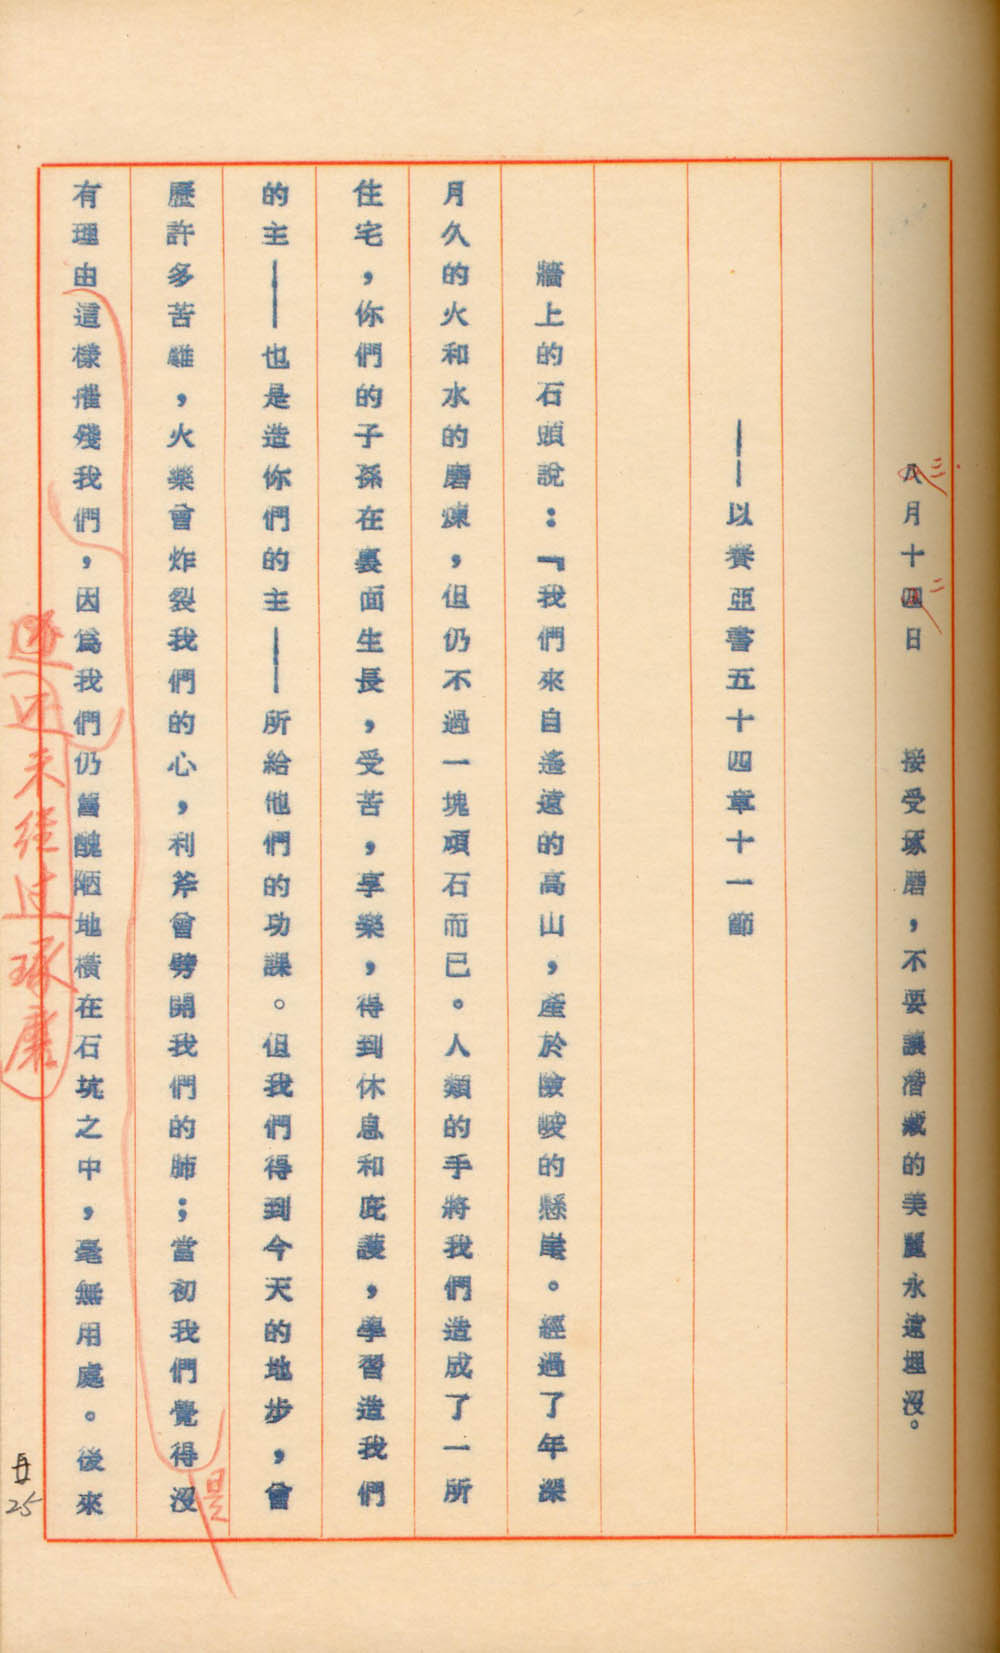 八月十四日　接受琢磨，不要讓潛藏的美麗永遠埋沒。
三
二
——以賽亞書五十四章十一節
牆上的石頭說：『我們來自遙遠的高山，產於險峻的懸崖。經過了年深
月久的火和水的磨煉，但仍不過一塊頑石而已。人類的手將我們造成了一所
住宅，你們的子孫在裏面生長，受苦，享樂，得到休息和庇護，學習造我們
的主——也是造你們的主——所給他們的功課。但我們得到今天的地步，曾
歷許多苦難，火藥曾炸裂我們的心，利斧曾劈開我們的肺；當初我們覺得沒
是
有理由這樣摧殘我們，因為我們仍舊醜陋地橫在石坑之中，毫無用處。後來
還未經過琢磨
25